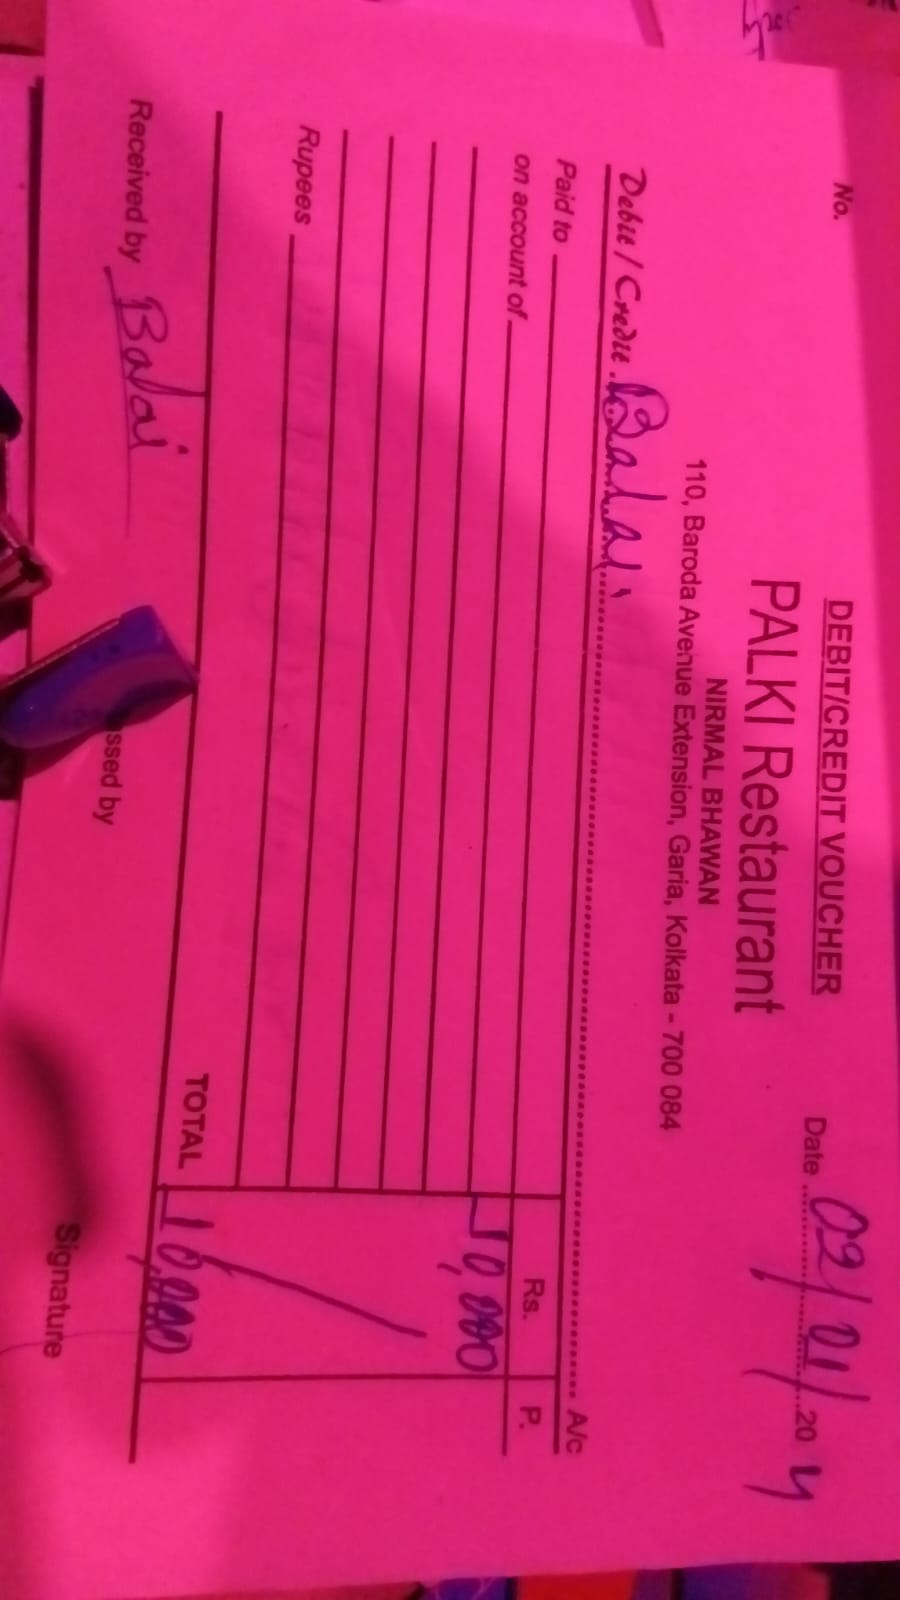 DEBIT/CREDIT VOUCHER
No.
PALKI Restaurant
Date 02/01/20 4
NIRMAL BHAWAN
110, Baroda Avenue Extension, Garia, Kolkata - 700 084
Debit / Credit Balai A/c
Paid to
Rs. P.
on account of
10,000
Rupees
TOTAL 10,000
Received by Balai
ssed by
Signature